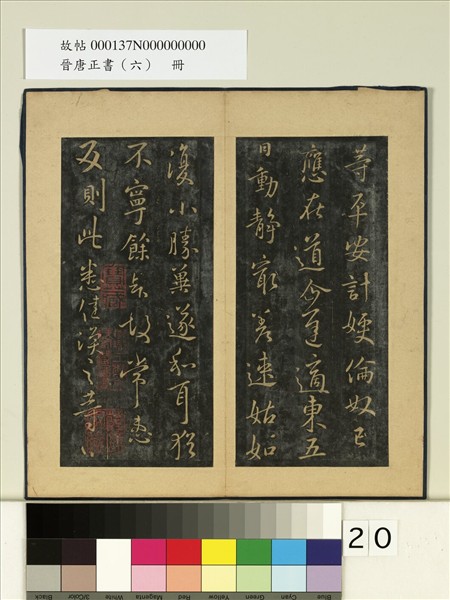 故帖 000137N000000000
晉唐正書（六） 冊
等平安計嫂倫奴已
應在道適東五
日動靜差速姑如
復小勝冀遂和耳猶
不寧餘知故常患
反則此悉佳漢之等
20
Blue Cyan Green Yellow Red Magenta White 3/Color Black